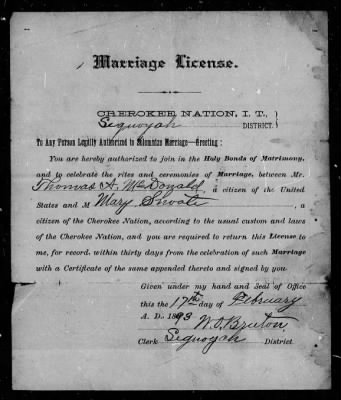 Marriage License.
CHEROKEE NATION, I. T.,
Sequoyah DISTRICT.
To Any Person Legally Authorized to Solemnize Marriage—Greeting:
You are hereby authorized to join in the Holy Bonds of Matrimony,
and to celebrate the rites and ceremonies of Marriage, between Mr.
Thomas A. McDonald, a citizen of the United
States and M Mary Shoate, a
citizen of the Cherokee Nation, according to the usual custom and laws
of the Cherokee Nation, and you are required to return this License to
me, for record, within thirty days from the celebration of such Marriage
with a Certificate of the same appended thereto and signed by you.
Given under my hand and Seal of Office
this the 17th day of February
A. D. 1893 W. O. Bruton,
Clerk Sequoyah District.